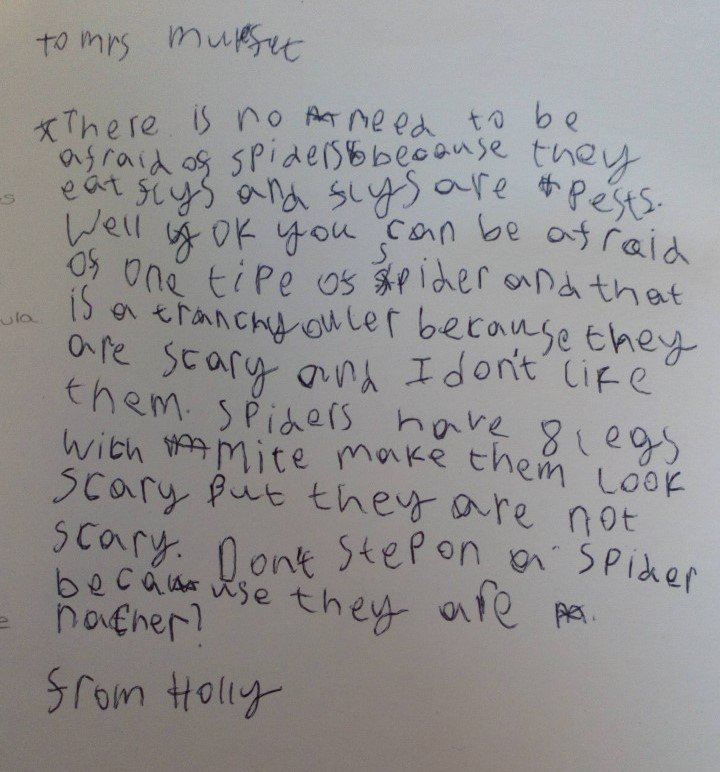 to mrs
There is no need to be
afraid of spiders because they
eat flys and flys are Pests.
Well OK you can be afraid
of one tipe of spider and that
ula
is a tranchyouler because they
are scary and I don't like
them. spiders have 8 legs
with mite make them look
scary but they are not
scary. Don't step on a spider
because they are
nacher!
from Holly